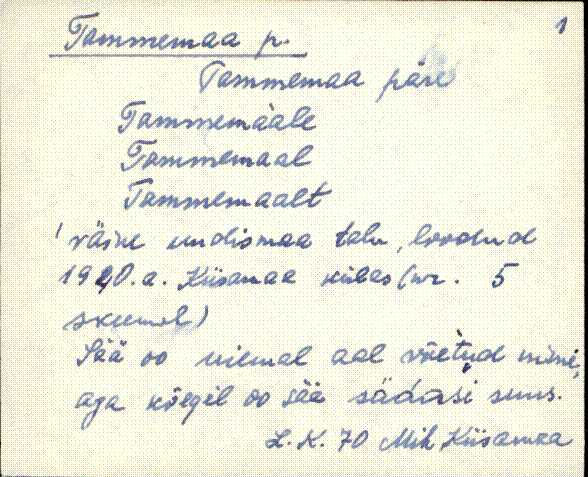 1
Tammemaa p.
Tammemaa päre
Tammemàale
Tammemaal
Tammemaalt
'väine uudismaa talu, loodud
1920.a. Kiisamaa külas (nr. 5
skeemil)
Sää oo viemal aal võetud nimi,
aga kõegil oo sää sädasi suus.
L. K. 70 Mih. Kiisamaa